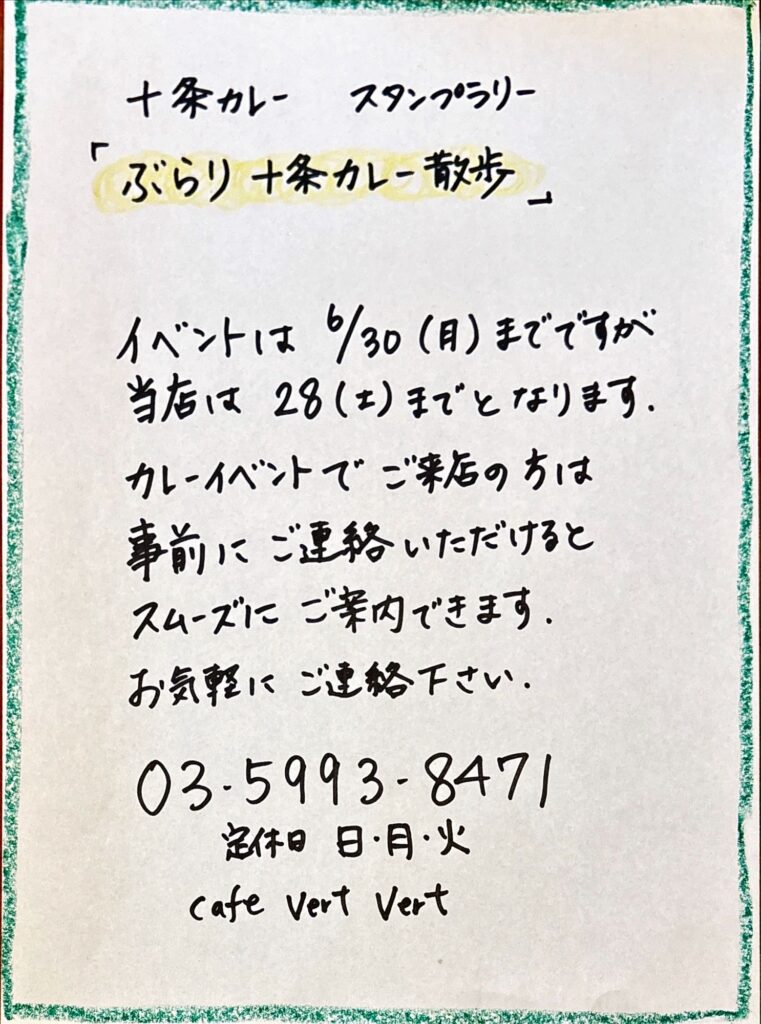 十条カレー スタンプラリー
「ぶらり十条カレー散歩」
イベントは 6/30(月)までですが
当店は 28(土)までとなります.
カレーイベントで ご来店の方は
事前に ご連絡いただけると
スムーズに ご案内できます.
お気軽に ご連絡下さい.
03-5993-8471
定休日 日・月・火
cafe vert vert